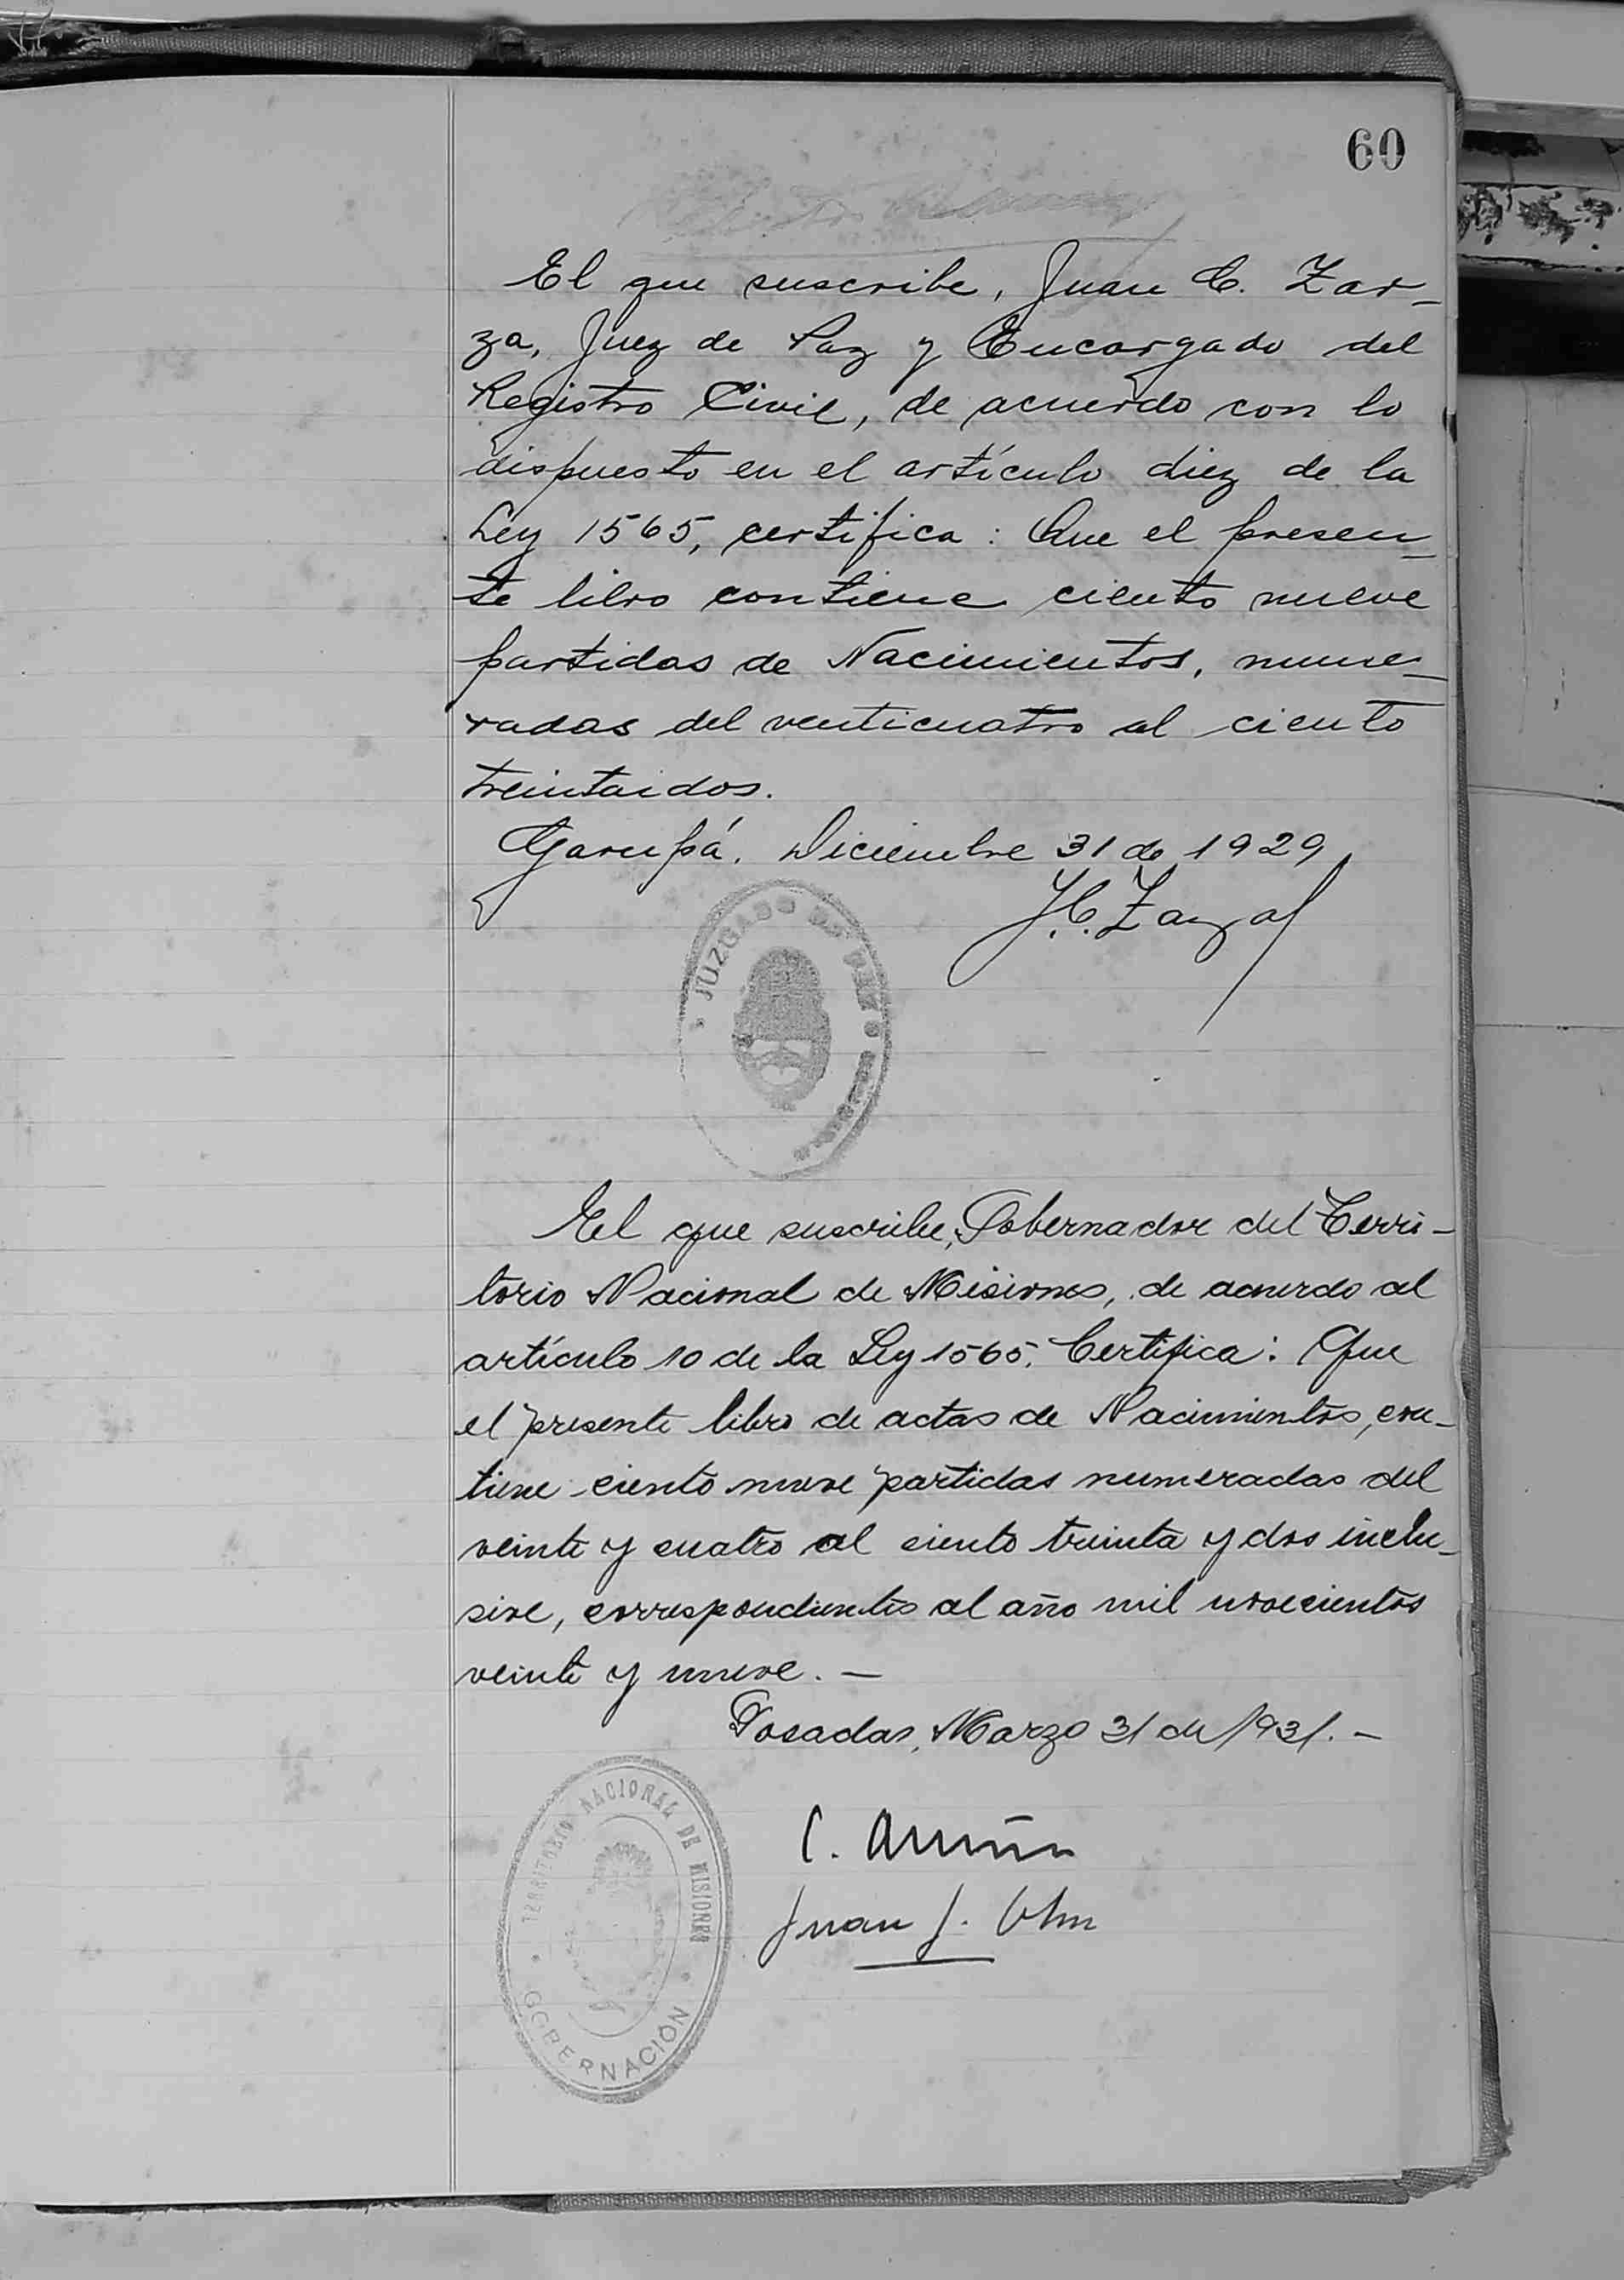 60
El que suscribe, Juan C. Zar-
za, Juez de Paz y Encargado del
Registro Civil, de acuerdo con lo
dispuesto en el artículo diez de la
Ley 1565, certifica: Que el presen-
te libro contiene ciento nueve
partidas de Nacimientos, nume-
radas del venticuatro al ciento
treintaidos.
Garupá, Diciembre 31 de 1929
J. C. Zarza
JUZGADO DE PAZ
El que suscribe, Gobernador del Terri-
torio Nacional de Misiones, de acuerdo al
artículo 10 de la Ley 1565, Certifica: Que
el presente libro de actas de Nacimientos, con-
tiene ciento nueve partidas numeradas del
veinte y cuatro al ciento treinta y dos inclu-
sive, correspondientes al año mil novecientos
veinte y nueve. —
Posadas, Marzo 31 de 1931. —
TERRITORIO NACIONAL DE MISIONES
GOBERNACIÓN
C.
Juan J.